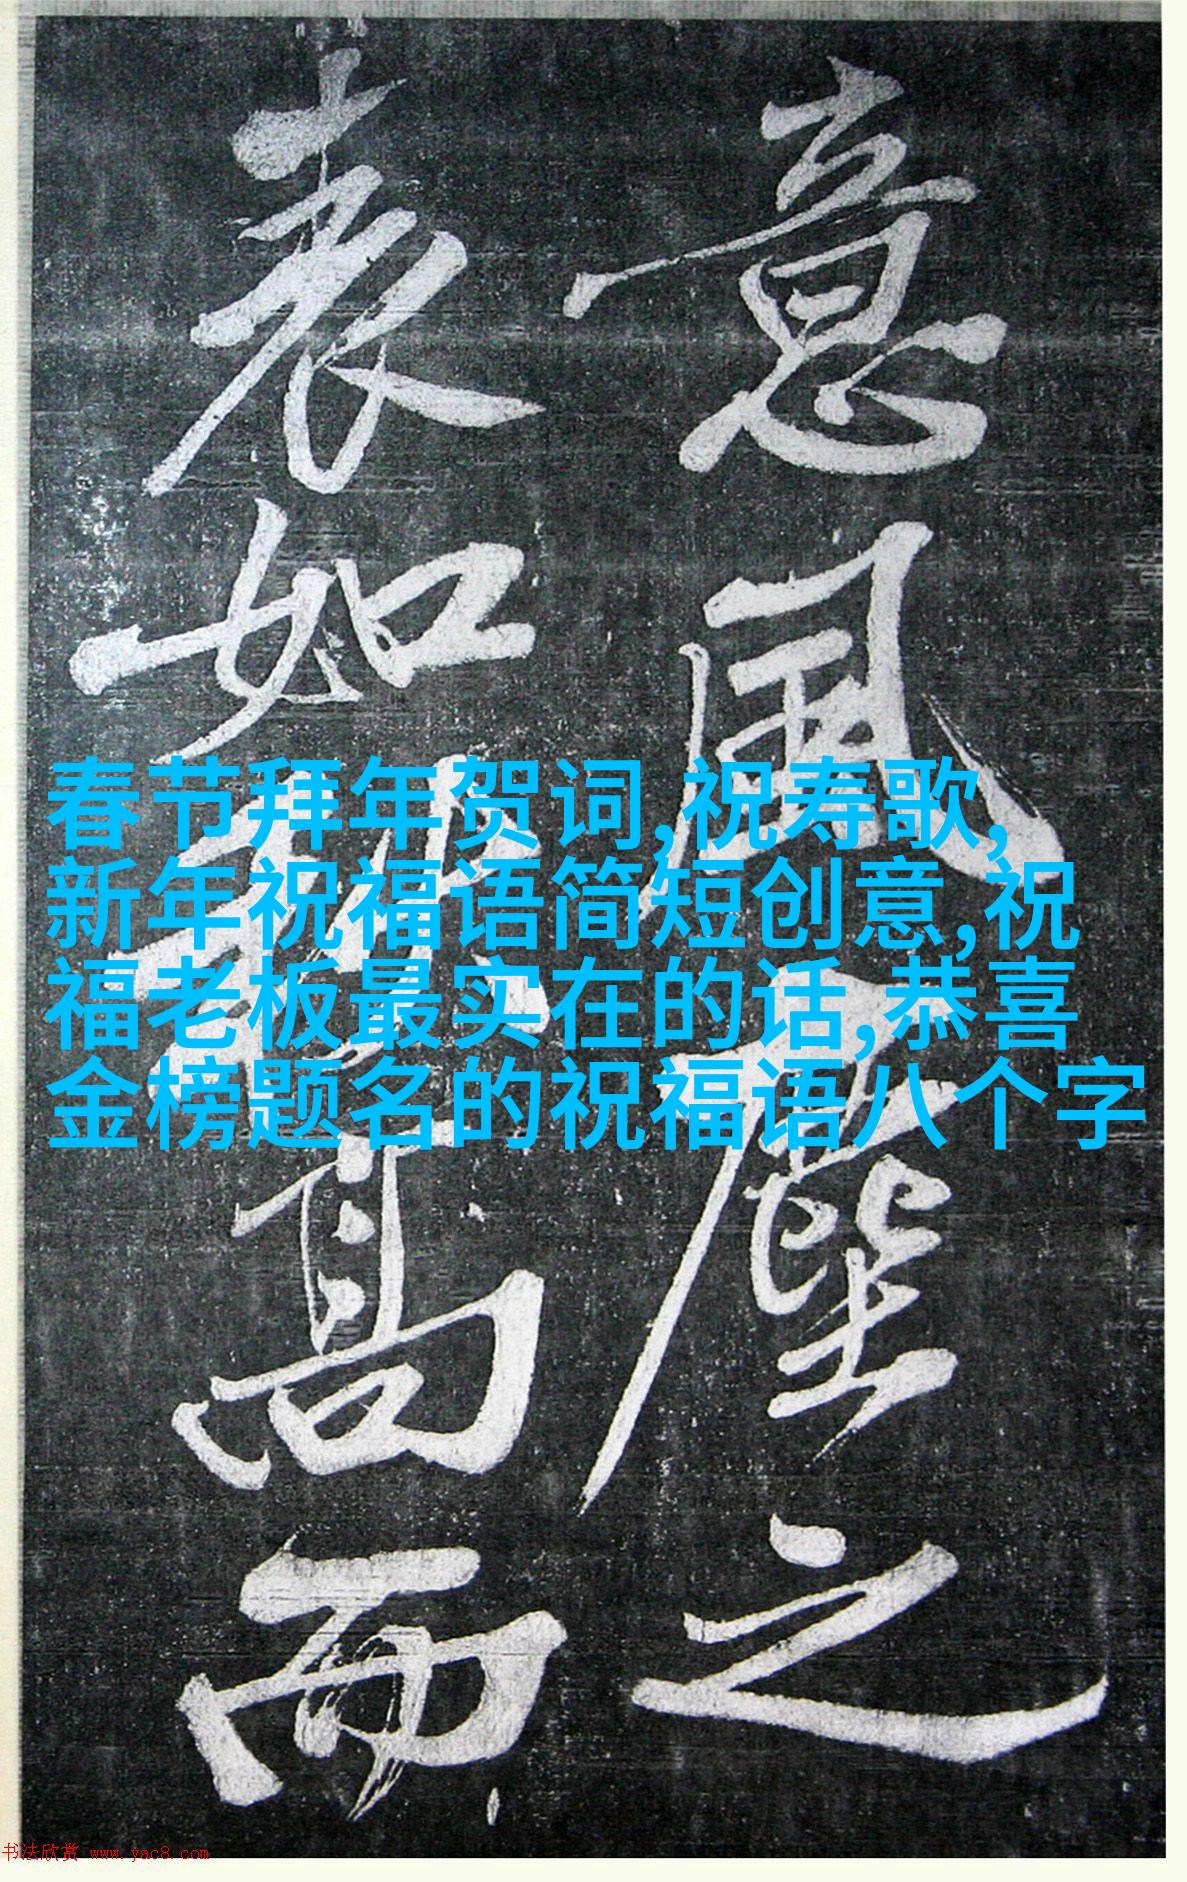 意風塵之
表如高而
春节拜年贺词,祝寿歌,
新年祝福语简短创意,祝
福老板最实在的话,恭喜
金榜题名的祝福语八个字
书法欣赏 www.yac8.com